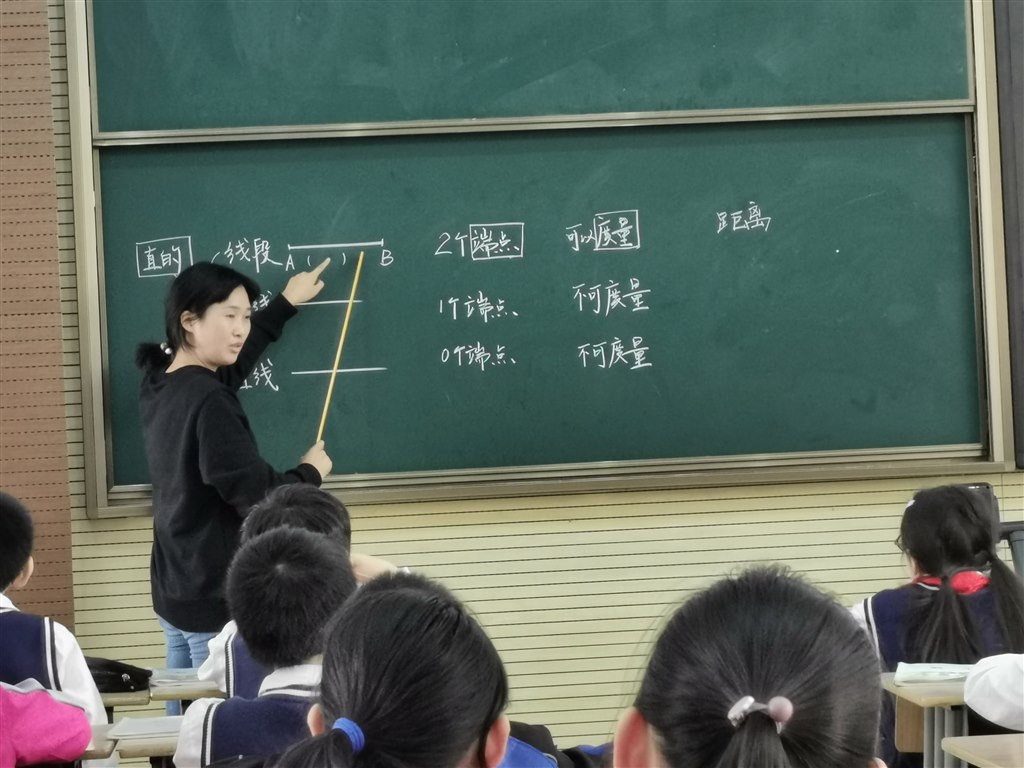 直的 线段 A ( ) B 2个端点 可以度量 距离
线 1个端点 不可度量
直线 0个端点 不可度量